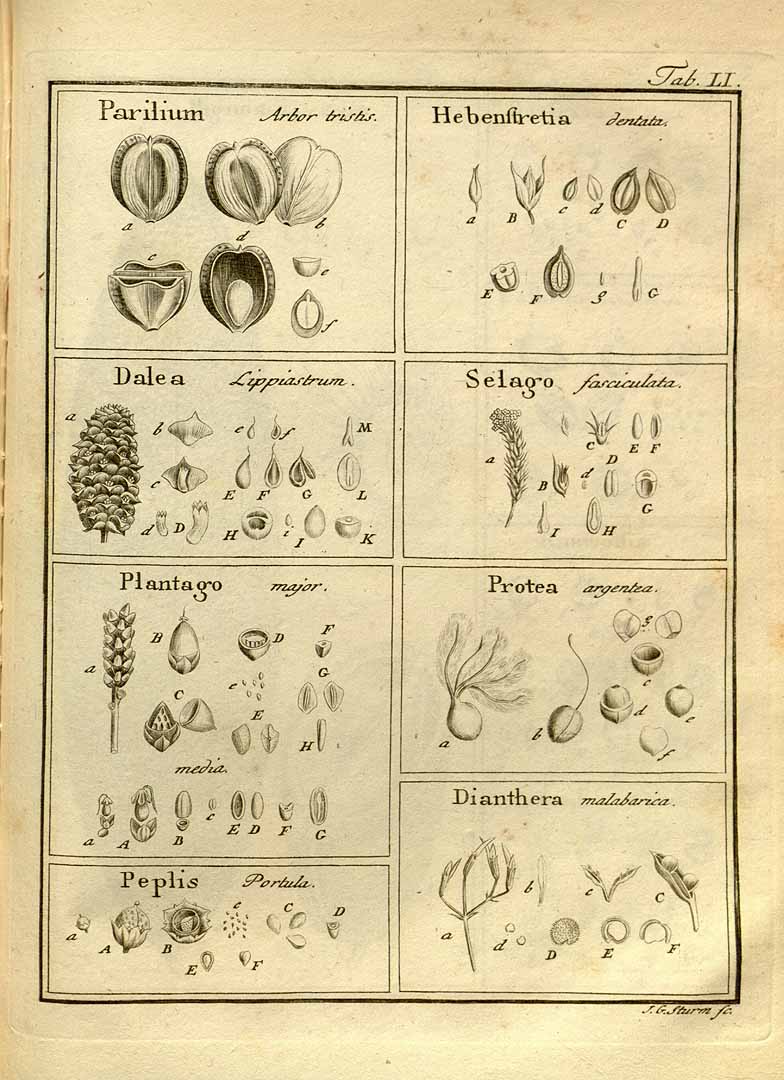 Tab. LI.
Parilium Arbor tristis.
a d b
c e
f
Hebenſtretia dentata.
a B c d C D
E F g G
Dalea Lippiastrum.
a b e f M
c E F G L
d D H i I K
Selago fasciculata.
a C E F
D
B d G
I H
Plantago major.
a B D F
e G
C E
H
media.
a A B c E D F G
Protea argentea.
g
c
d e
a b f
Peplis Portula.
a A B e C D
E F
Dianthera malabarica.
a b c C
d D E F
J. G. Sturm sc.